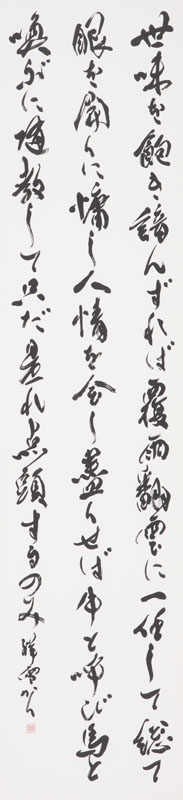 世味を飽き諳んずれば覆雨翻雲に一任して総て
眼を開くに慵し人情を会し尽くせば牛と喚び馬と
喚ぶに随教して只だ是れ点頭するのみ